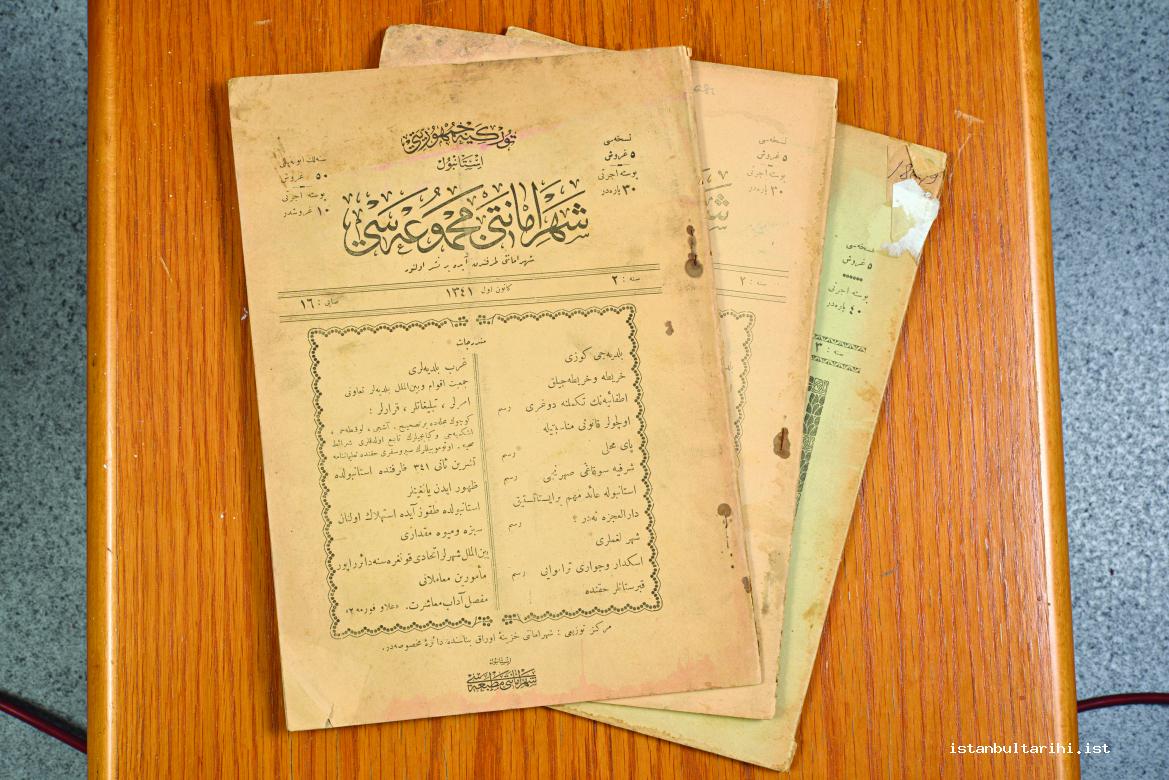 توركیه جمهوریتی
استانبول
شهر امانتی مجموعه سی
نسخه سی
٥ غروش
پوسته اجرتی
٣٠ پاره در
سنه لك ابونه سی
٥٠ غروش
پوسته اجرتی
١٠ غروشدر
شهر امانتی طرفندن آیده بر نشر اولنور
سنه : ٢
كانون اول ١٣٤١
صایی : ١٦
مندرجات
بلدیه جی كوزی
خریطه و خریطه جیلق
اطفائیه نك تكملنه دوغری رسم
اولچولر قانونی مناسبتیله
پای محل رسم
شرفیه سوقاغی صهرنجی رسم
استانبوله عائد مهم بر ایستاتستیق
دارالعجزه نه در ؟ رسم
شهر لغملری
اسكدار وجواری تراموایی رسم
قبرستانلر حقنده
غرب بلدیه لری
جمعیت اقوام وبین الملل بلدیه لر تعاونی
امرلر ، تبلیغاتلر ، قرارلر :
تشرین ثانی ٣٤١ ظرفنده استانبولده
ظهور ایدن یانغینلر
استانبولده طقوز آیده استهلاك اولنان
سبزه ومیوه مقداری
بین الملل شهرلر اتحادی قونغره سنه دائر راپور
مأمورین معاملاتی
مفصل آداب معاشرت.
مركز توزیعی : شهر امانتی خزینۀ اوراق بناسنده دائرۀ مخصوصه در.
استانبول
شهر امانتی مطبعه سی
نسخه سی
٥ غروش
پوسته اجرتی
٣٠ پاره در
سنه : ٢
نسخه سی
٥ غروش
پوسته اجرتی
٤٠ پاره در
سنه : ٣
istanbultarihi.ist